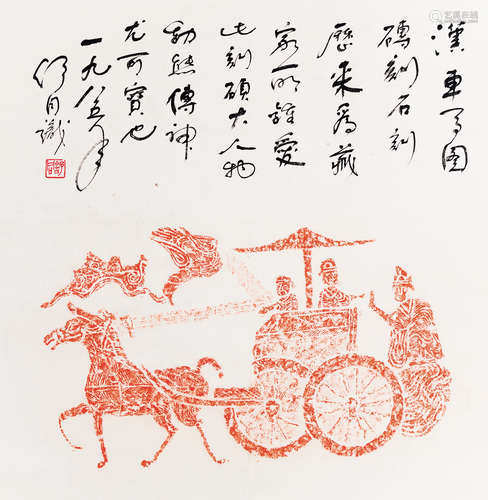 漢車馬圖
磚刻石刻
歷來爲藏
家所鍾愛
此刻碩大人物
動態傳神
尤可寶也
一九八年
識